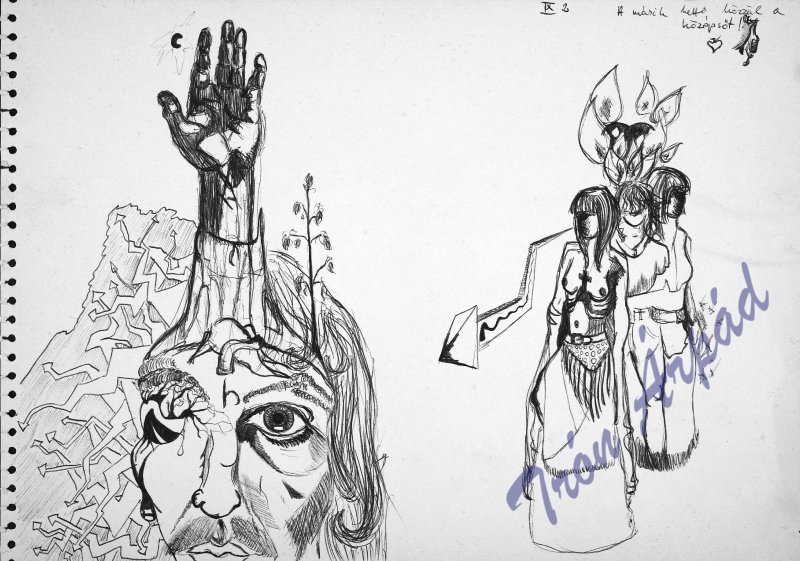 IX 2
A másik kettő közül a
középsőt!
h
Irón Árpád